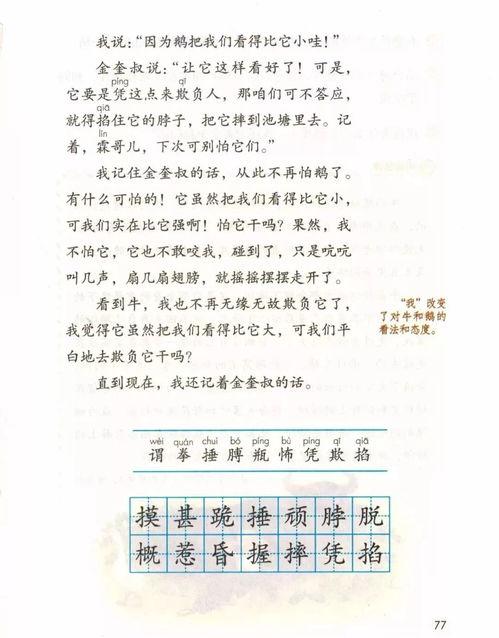 我说：“因为鹅把我们看得比它小哇！”
金奎叔说：“让它这样看好了！可是，
píng qī
它要是凭这点来欺负人，那咱们可不答应，
qiā
就得掐住它的脖子，把它摔到池塘里去。记
lín
着，霖哥儿，下次可别怕它们。”
我记住金奎叔的话，从此不再怕鹅了。
有什么可怕的！它虽然把我们看得比它小，
可我们实在比它强啊！怕它干吗？果然，我
不怕它，它也不敢咬我，碰到了，只是吭吭
叫几声，扇几扇翅膀，就摇摇摆摆走开了。
看到牛，我也不再无缘无故欺负它了，
我觉得它虽然把我们看得比它大，可我们平
白地去欺负它干吗？
直到现在，我还记着金奎叔的话。
“我”改变
了对牛和鹅的
看法和态度。
wèi quán chuí bó píng bù píng qī qiā
谓 拳 捶 膊 瓶 怖 凭 欺 掐
摸 甚 跪 捶 顽 脖 脱
概 惹 昏 握 摔 凭 掐
77